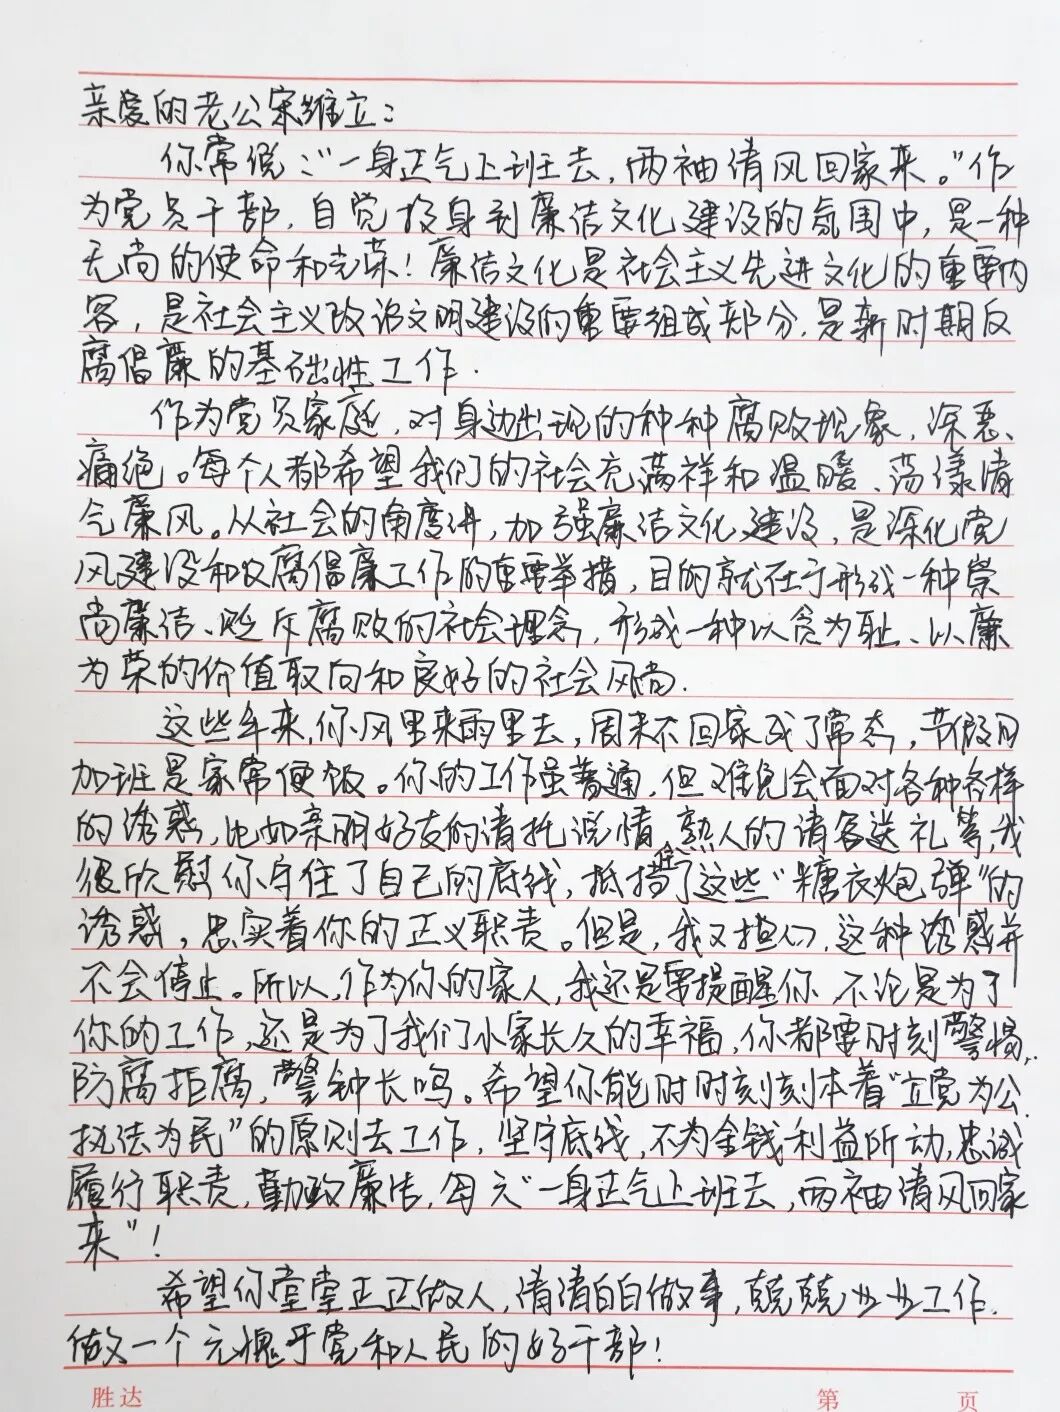 亲爱的老公宋维立：
你常说："一身正气上班去，两袖清风回家来。"作
为党员干部，自觉投身到廉洁文化建设的氛围中，是一种
无尚的使命和光荣！廉洁文化是社会主义先进文化的重要内
容，是社会主义政治文明建设的重要组成部分，是新时期反
腐倡廉的基础性工作.
作为党员家庭，对身边出现的种种腐败现象，深恶、
痛绝。每个人都希望我们的社会充满祥和温暖、荡漾清
气廉风。从社会的角度讲，加强廉洁文化建设，是深化党
风建设和反腐倡廉工作的重要举措，目的就在于形成一种崇
尚廉洁、贬斥腐败的社会理念，形成一种以贪为耻、以廉
为荣的价值取向和良好的社会风尚.
这些年来，你风里来雨里去，周末不回家成了常态，节假日
加班是家常便饭。你的工作虽普通，但难免会面对各种各样
的诱惑，比如亲朋好友的请托说情、熟人的请客送礼等，我
很欣慰你守住了自己的底线，抵挡住了这些"糖衣炮弹"的
诱惑，忠实着你的正义职责。但是，我又担心，这种诱惑并
不会停止。所以，作为你的家人，我还是要提醒你，不论是为了
你的工作，还是为了我们小家长久的幸福，你都要时刻警惕，
防腐拒腐，警钟长鸣。希望你能时时刻刻本着"立党为公、
执法为民"的原则去工作，坚守底线，不为金钱利益所动，忠诚
履行职责，勤政廉洁，每天"一身正气上班去，两袖清风回家
来"！
希望你堂堂正正做人，清清白白做事，兢兢业业工作.
做一个无愧于党和人民的好干部！
胜达 第 页